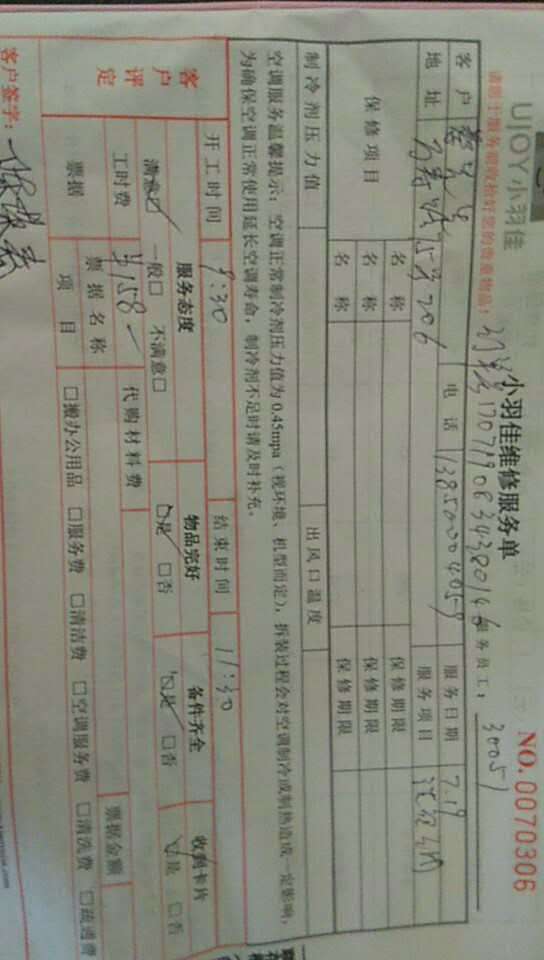 UJOY小羽佳
小羽佳维修服务单
NO. 0070306
请您于服务前收拾好您的贵重物品;
170719083438014
服务员工: 30051
客户
电话 13850004059
服务日期 7.19
地址 206
服务项目
保修项目 名称 保修期限
名称 保修期限
名称 保修期限
制冷剂压力值
出风口温度
空调服务温馨提示: 空调正常制冷剂压力值为0.45mpa(视环境、机型而定), 拆装过程会对空调制冷或制热造成一定影响,
为确保空调正常使用延长空调寿命, 制冷剂不足时请及时补充。
开工时间 9:30 结束时间 11:30
客户评定
服务态度 物品完好 备件齐全 收到卡片
满意☑ 一般□ 不满意□ ☑是 □否 ☑是 □否 ☑是 □否
工时费 ¥158 代购材料费
票据 票据名称 票据金额
项目 □搬办公用品 □服务费 □清洁费 □空调服务费 □清洗费 □疏通费
客户签字: